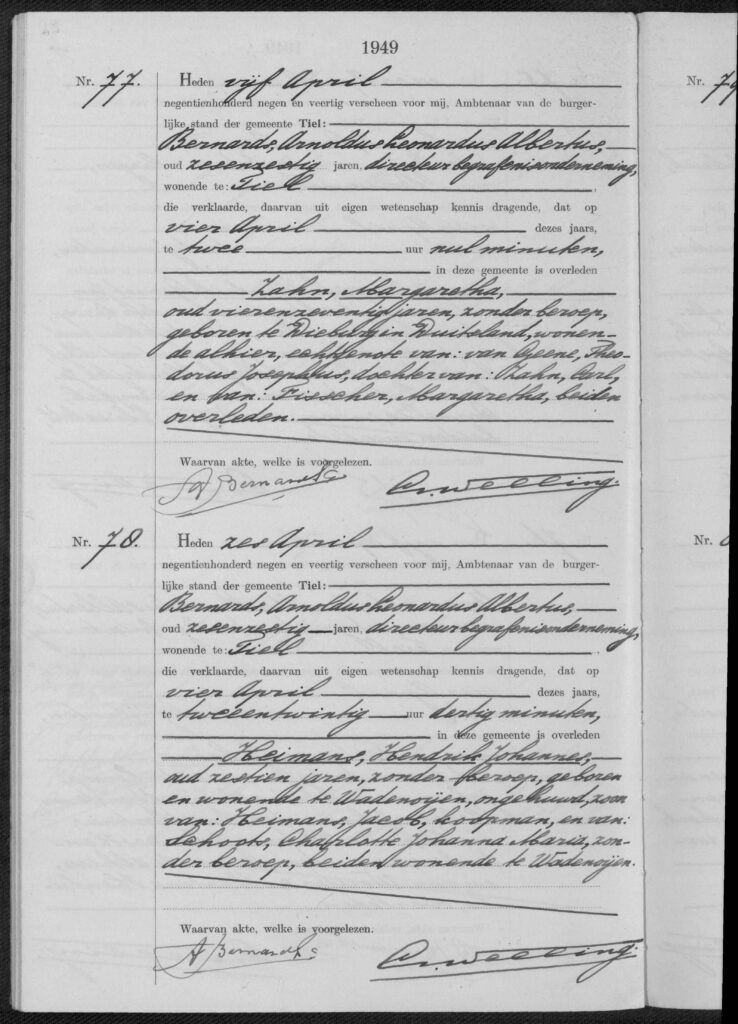 1949
Nr. 77. Heden vijf April
negentienhonderd negen en veertig verscheen voor mij, Ambtenaar van de burger-
lijke stand der gemeente Tiel:
Bernards, Arnoldus Leonardus Albertus,
oud zesenzestig jaren, directeur begrafenisonderneming,
wonende te: Tiel
die verklaarde, daarvan uit eigen wetenschap kennis dragende, dat op
vier April dezes jaars,
te twee uur nul minuten,
in deze gemeente is overleden
Zahn, Margaretha,
oud vierenzeventig jaren, zonder beroep,
geboren te Dieburg in Duitsland, wonen-
de alhier, echtgenote van: van Geene, Theo-
dorus Josephus, dochter van: Zahn, Carl,
en van: Fisscher, Margaretha, beiden
overleden.
Waarvan akte, welke is voorgelezen.
A Bernards
Nr. 78. Heden zes April
negentienhonderd negen en veertig verscheen voor mij, Ambtenaar van de burger-
lijke stand der gemeente Tiel:
Bernards, Arnoldus Leonardus Albertus,
oud zesenzestig jaren, directeur begrafenisonderneming,
wonende te: Tiel
die verklaarde, daarvan uit eigen wetenschap kennis dragende, dat op
vier April dezes jaars,
te tweeentwintig uur dertig minuten,
in deze gemeente is overleden
Heimans, Hendrik Johannes,
oud zestien jaren, zonder beroep, geboren
en wonende te Wadenoijen, ongehuwd, zoon
van: Heimans, Jacob, koopman, en van:
Schoots, Charlotte Johanna Maria, zon-
der beroep, beiden wonende te Wadenoijen.
Waarvan akte, welke is voorgelezen.
A Bernards
Nr. 79
Nr.